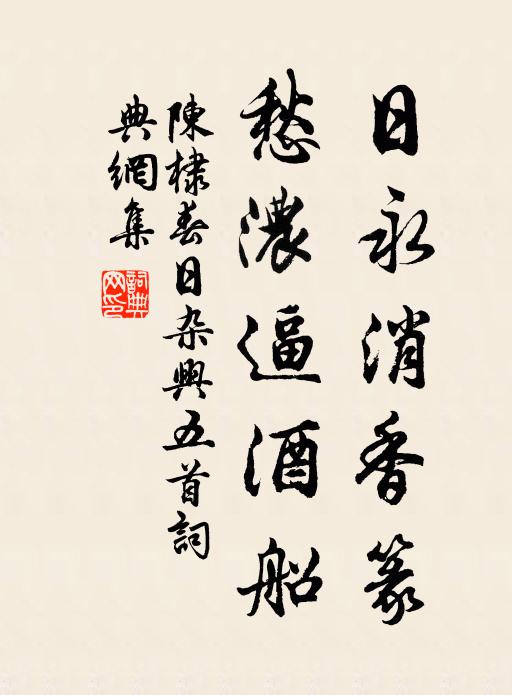 日永消香篆
愁濃逼酒船
陳棣春日杂興五首詞
典網集
詞典
网印